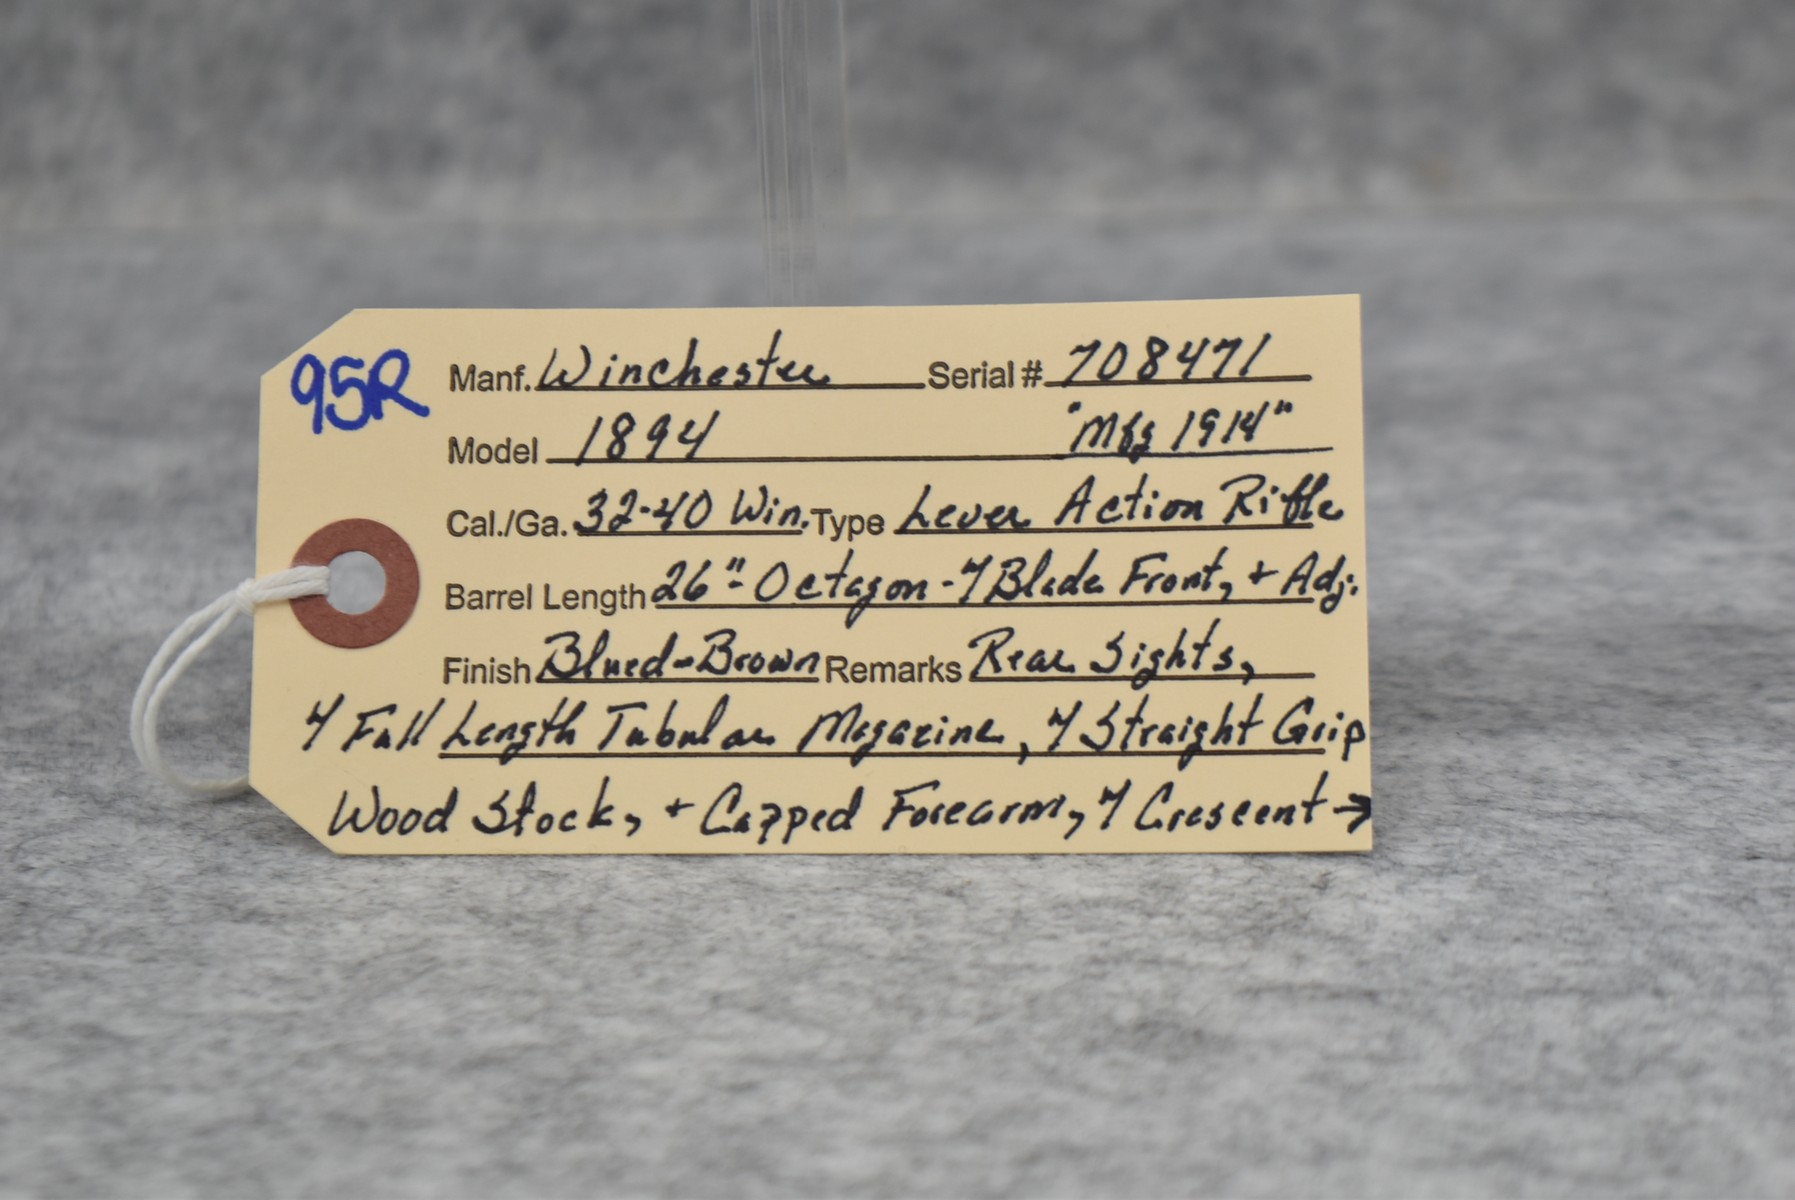 95R
Manf. Winchester Serial # 708471
Model 1894 "Mfg 1914"
Cal./Ga. 32-40 Win. Type Lever Action Rifle
Barrel Length 26"- Octagon - 7 Blade Front, + Adj.
Finish Blued-Brown Remarks Rear Sights,
7 Full Length Tubular Magazine, 7 Straight Grip
Wood Stock, + Capped Forearm, 7 Crescent →